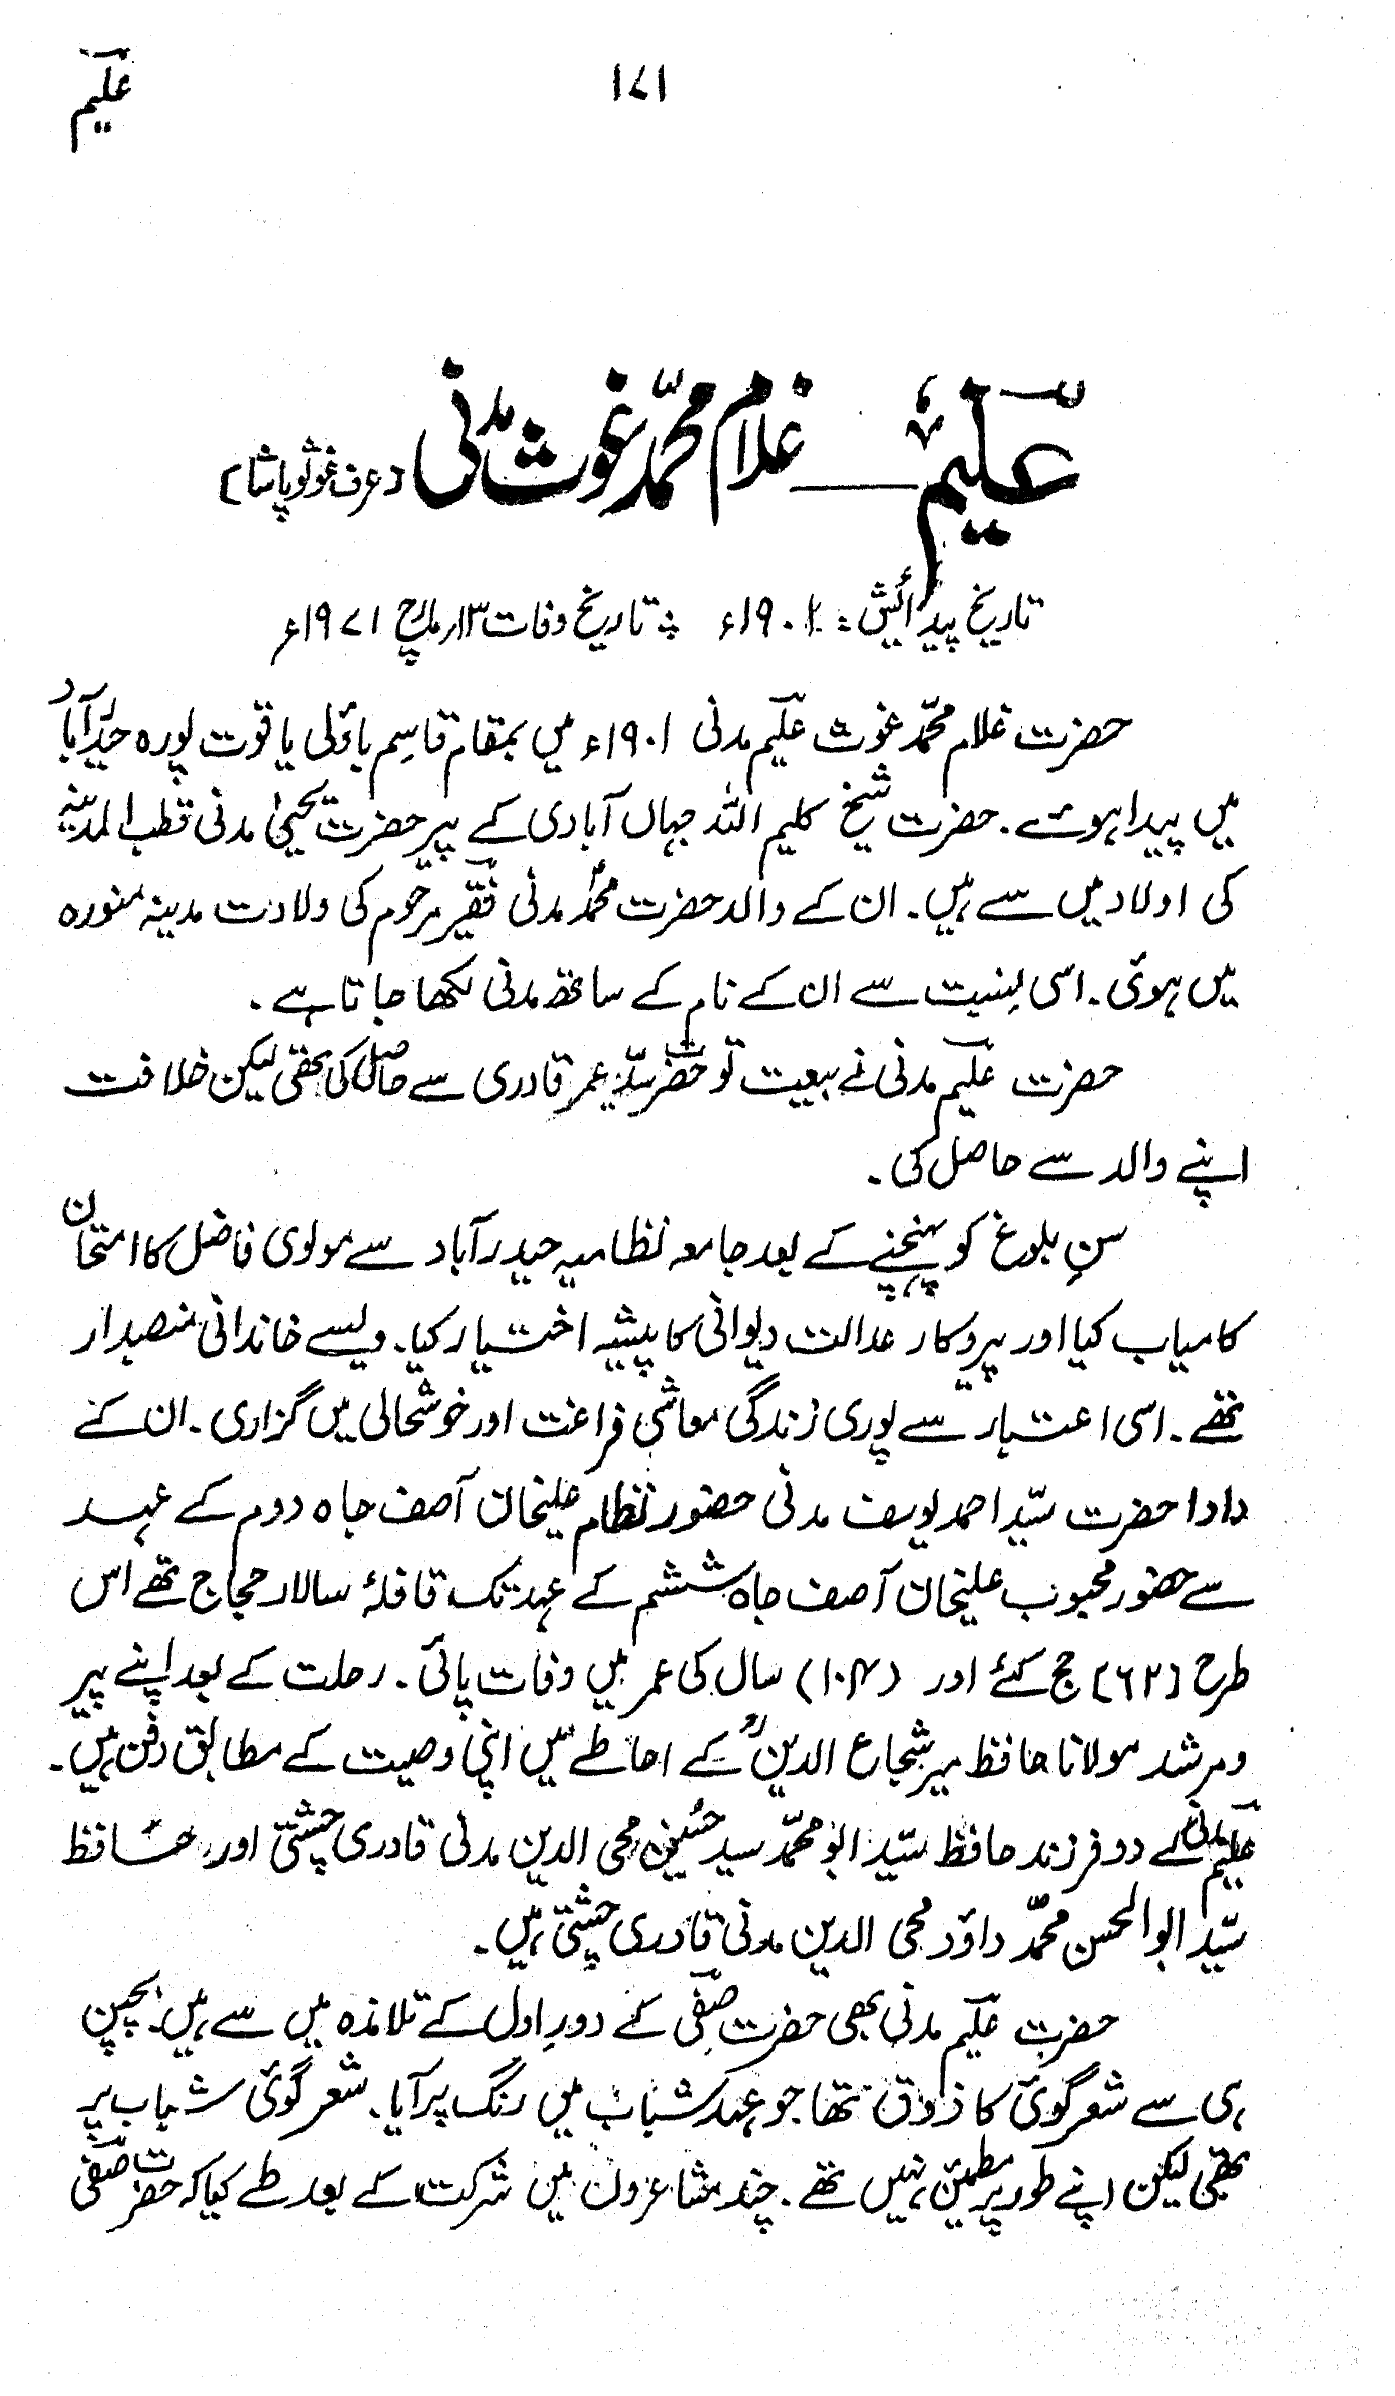 علیم
۱۷۱
علیم — غلام محمد غوث مدنی (عرف غوثو پاشا)
تاریخ پیدائش: ۱۹۰۱ء ؞ تاریخ وفات ۱۳؍مارچ ۱۹۷۱ء
حضرت غلام محمد غوث علیم مدنی ۱۹۰۱ء میں بمقام قاسم باؤلی یاقوت پورہ حیدرآباد
میں پیدا ہوئے۔ حضرت شیخ کلیم اللہ جہاں آبادی کے پیر حضرت یحییٰ مدنی قطب المدینہ
کی اولاد میں سے ہیں۔ ان کے والد حضرت محمد مدنی فقیر مرحوم کی ولادت مدینہ منورہ
میں ہوئی۔ اسی نسبت سے ان کے نام کے ساتھ مدنی لکھا جاتا ہے۔
حضرت علیم مدنی نے بیعت تو حضرت سید عمر قادری سے حاصل کی تھی لیکن خلافت
اپنے والد سے حاصل کی۔
سنِ بلوغ کو پہنچنے کے بعد جامعہ نظامیہ حیدرآباد سے مولوی فاضل کا امتحان
کامیاب کیا اور پیروکار عدالت دیوانی کا پیشہ اختیار کیا۔ ویسے خاندانی منصبدار
تھے۔ اسی اعتبار سے پوری زندگی معاشی فراغت اور خوشحالی میں گزاری۔ ان کے
دادا حضرت سیّد احمد یوسف مدنی حضور نظام علیخان آصف جاہ دوم کے عہد
سے حضور محبوب علیخان آصف جاہ ششم کے عہد تک قافلۂ سالار حجاج تھے اس
طرح (۶۲) حج کئے اور (۱۰۴) سال کی عمر میں وفات پائی۔ رحلت کے بعد اپنے پیر
و مرشد مولانا حافظ میر شجاع الدینؒ کے احاطے میں اپنی وصیت کے مطابق دفن ہیں۔
علیم مدنی کے دو فرزند حافظ سیّد ابو محمّد سید حسینی محی الدین مدنی قادری چشتی اور حافظ
سیّد ابوالحسن محمّد داؤد محی الدین مدنی قادری چشتی ہیں۔
حضرت علیم مدنی بھی حضرت صفی کے دورِ اول کے تلامذہ میں سے ہیں۔ بچپن
ہی سے شعر گوئی کا ذوق تھا جو عہدِ شباب میں رنگ پر آیا۔ شعر گوئی شباب پر
تھی لیکن اپنے طور پر مطمئن نہیں تھے۔ چند مشاعروں میں شرکت کے بعد طے کیا کہ حضرت صفی